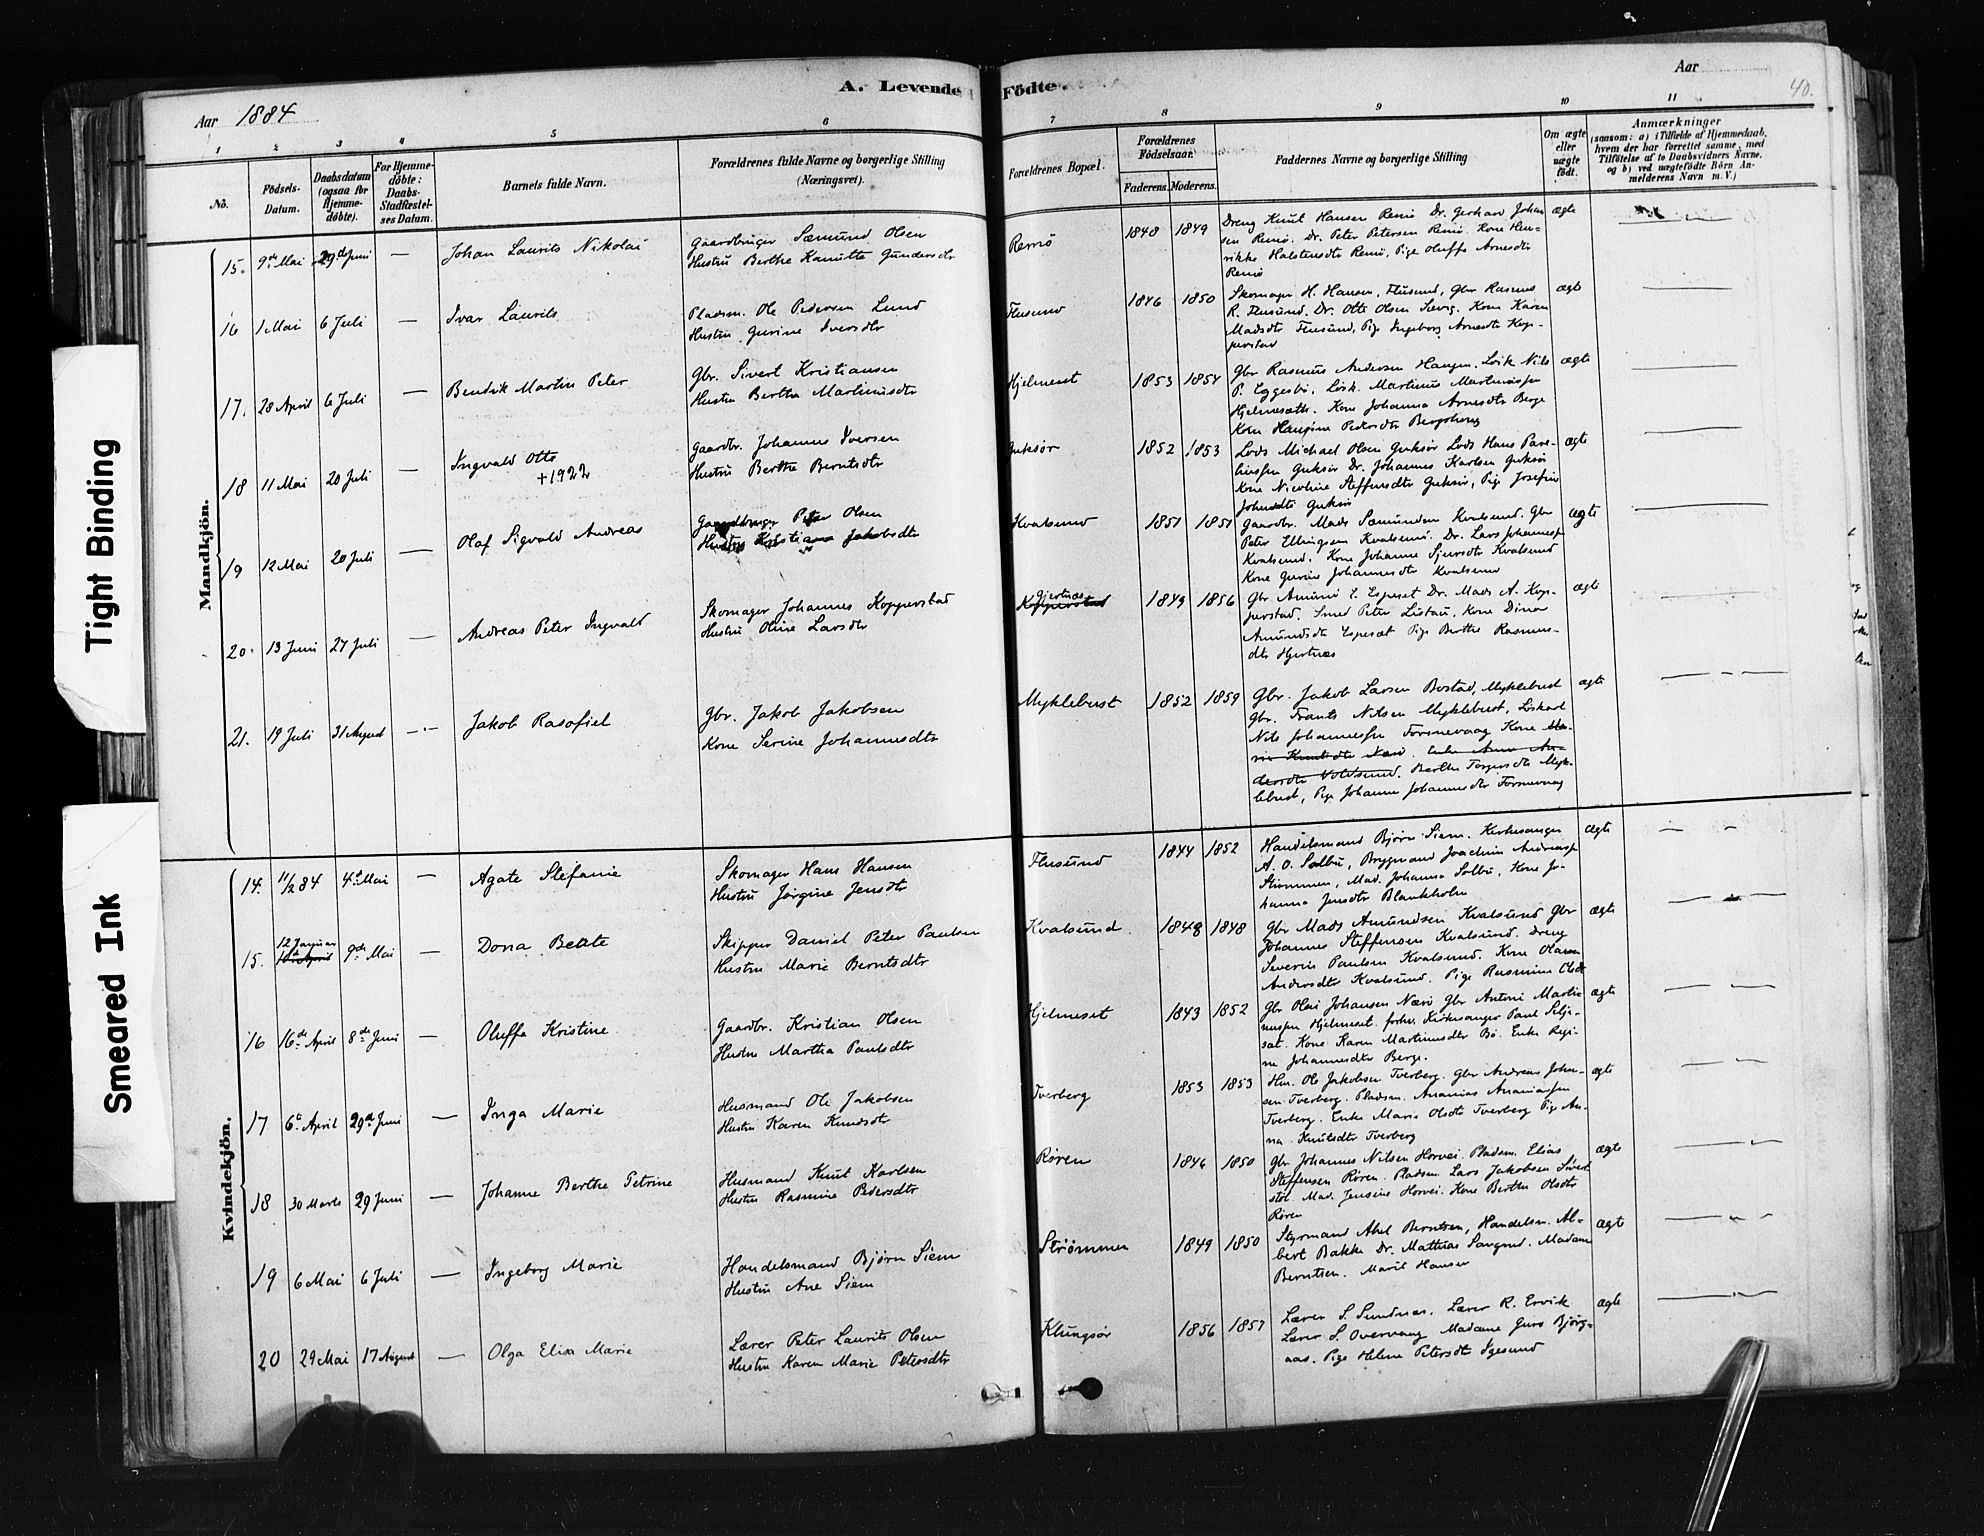 Tight Binding
Smeared Ink
Aar 1884
A. Levende Födte.
Aar
40.
1 2 3 4 5 6 7 8 9 10 11
No.
Födsels-
Datum.
Daabsdatum
(ogsaa for
Hjemme-
döbte).
For Hjemme-
döbte:
Daabs-
Stadfæstel-
ses Datum.
Barnets fulde Navn.
Forældrenes fulde Navne og borgerlige Stilling
(Næringsvei).
Forældrenes Bopæl.
Forældrenes
Födselsaar.
Faderens. Moderens.
Faddernes Navne og borgerlige Stilling
Om ægte
eller
uægte
födt.
Anmærkninger
(saasom: a) i Tilfælde af Hjemmedaab,
hvem der har forrettet samme, med
Tilföielse af to Daabsvidners Navne,
og b) ved uægtefödte Börn An-
melderens Navn m. V.)
Mandkjön.
15. 9de Mai 29de Juni — Johan Laurits Nikolai
Gaardbruger Sæmund Olsen
Hustru Berthe Kanutte Gundersdtr
Remö 1848 1849
Dreng Knut Hansen Remö Dr. Gerhard Johan
sen Remö. Dr. Peter Petersen Remö. Kone Hen-
rikke Halstensdtr Remö, Pige Oluffa Arnesdtr
Remö
ægte
16 1 Mai 6 Juli — Ivar Laurits
Pladsm. Ole Pedersen Lund
Hustru Gurine Iversdtr
Flusund 1846 1850
Skomager H. Hansen, Flusund, Gbr Rasmus
R. Flusund. Dr. Otte Olsen Kone Karen
Madsdtr Flusund, Pige Ingeborg Arnesdtr Kop-
perstad
ægte
17. 28 April 6 Juli — Bendik Martin Peter
Gbr. Sivert Kristiansen
Hustru Berthe Martinusdtr
Hjelmeset 1853 1854
Gbr Rasmus Andersen Haugen. Løsk Nils
P. Eggesbö, Løsk. Martinus Martinussen
Hjelmesæth. Kone Johanna Arnesdtr Berge
Kone Pedersdtr
ægte
18 11 Mai 20 Juli — Ingvald Otto
+1922
Gaardbr. Johannes Iversen
Hustru Berthe Berntsdtr
Gurksør 1852 1853
Lods Michael Olsen Gurksør Lods Hans Pare-
liussen Gurksør Dr. Johannes Karlsen Gurksör
Kone Nicoline Steffensdtr Gurksör, Pige Josefine
Johnsdtr Gurksör
ægte
19 12 Mai 20 Juli — Olaf Sigvald Andreas
Gaardbruger Peter Olsen
Hustru Kristiane Jakobsdtr
Kvalsund 1851 1851
Gaardbr. Mads Kvalsund. Gbr
Peter Ellingsen Kvalsund. Dr. Lars Johannessen
Kvalsund. Kone Johanne Sjursdtr Kvalsund
Kone Gurine Johannesdtr Kvalsund
ægte
20. 13 Juni 27 Juli — Andreas Peter Ingvald
Skomager Johannes Kopperstad
Hustru Oline Larsdtr
Gjertnæs
Kopperstad 1849 1856
Gbr Amund E. Espeset Dr. Mads A. Kop-
perstad. Smed Peter Listau, Kone Dina
Amundsdtr Espesæt Pige Berthe Rasmus-
dtr Hjertnæs
ægte
21. 19 Juli 31 August — Jakob Rasofiel
Gbr. Jakob Jakobsen
Kone Serine Johannesdtr
Myklebust 1852 1859
Gbr. Jakob Larsen Bostad, Myklebust
Gbr. Frants Nilsen Myklebust, Löskarl
Nils Johannessen Forsnevaag Kone Ma-
rie Knutsdtr Enke Anne An-
dersdtr Voldsund. Berthe Myk-
lebust, Pige Johanne Johannesdtr Forsnevaag
ægte
Kvindekjön.
14. 11/2 84 4de Mai — Agate Stefanie
Skomager Hans Hansen
Hustru Jørgine Jensdtr
Flusund 1844 1852
Handelsmand Bjørn Siem. Kirkesanger
A. O. Solbu, Brygmand Joachim Andreasen
Strømmen, Mad. Johanna Solbu, Kone Jo-
hanna Jensdtr Blankholm
ægte
15. 12 Januar 9de Mai — Dona Beate
Skipper Daniel Peter Paulsen
Hustru Marie Berntsdtr
Kvalsund. 1848 1848
Gbr Mads Amundsen Kvalsund Gbr
Johannes Steffensen Kvalsund. Dreng
Severin Paulsen Kvalsund. Kone Olava
Andersdtr Kvalsund. Pige Rasmine Olsdtr
ægte
16 16de April 8de Juni — Oluffa Kristine
Gaardbr. Kristian Olsen
Hustru Martha Paulsdtr
Hjelmeset 1843 1852
Gbr Olai Johansen Nærö Gbr Antoni Marti-
nussen Hjelmeset. forhv. Kirkesanger Paul Silje-
sæt. Kone Karen Martinusdtr Bö. Enke Regi-
ne Johannesdtr Berge.
ægte
17 6te April 29de Juni — Inga Marie
Husmand Ole Jakobsen
Hustru Karen Knudsdtr
Tverberg 1853 1853
Hm. Ole Jakobsen Tverberg. Gbr Andreas Johan-
sen Tverberg. Pladsm. Ananias Ananiassen
Tverberg. Enke Marie Olsdtr Tverberg Pige An-
na Knutsdtr Tverberg
ægte
18 30 Marts 29 Juni — Johanne Berthe Petrine
Husmand Knut Karlsen
Hustru Rasmine Pedersdtr
Røren 1846 1850
Gbr Johannes Nilsen Horvei. Pladsm. Elias
Steffensen Rören. Pladsm. Lars Jakobsen
Mad. Jensine Horvei. Kone Berthe Olsdtr
Røren
ægte
19 6 Mai 6 Juli — Ingeborg Marie
Handelsmand Bjørn Siem
Hustru Ane Siem
Strömmen 1849 1850
Styrmand Abel Berntsen, Handelsm. Al-
bert Bakke Dr. Mathias Madame
Berntsen. Marit Hansen
ægte
20 29 Mai 17 August — Olga Elisa Marie
Lærer Peter Laurits Olsen
Hustru Karen Marie Petersdtr
Klungsör 1856 1857
Lærer S. Sundnæs. Lærer R. Ervik
Lærer S. Overvaag Madame Guro Bjørg-
aas. Pige Helene Petersdtr Igesund
ægte